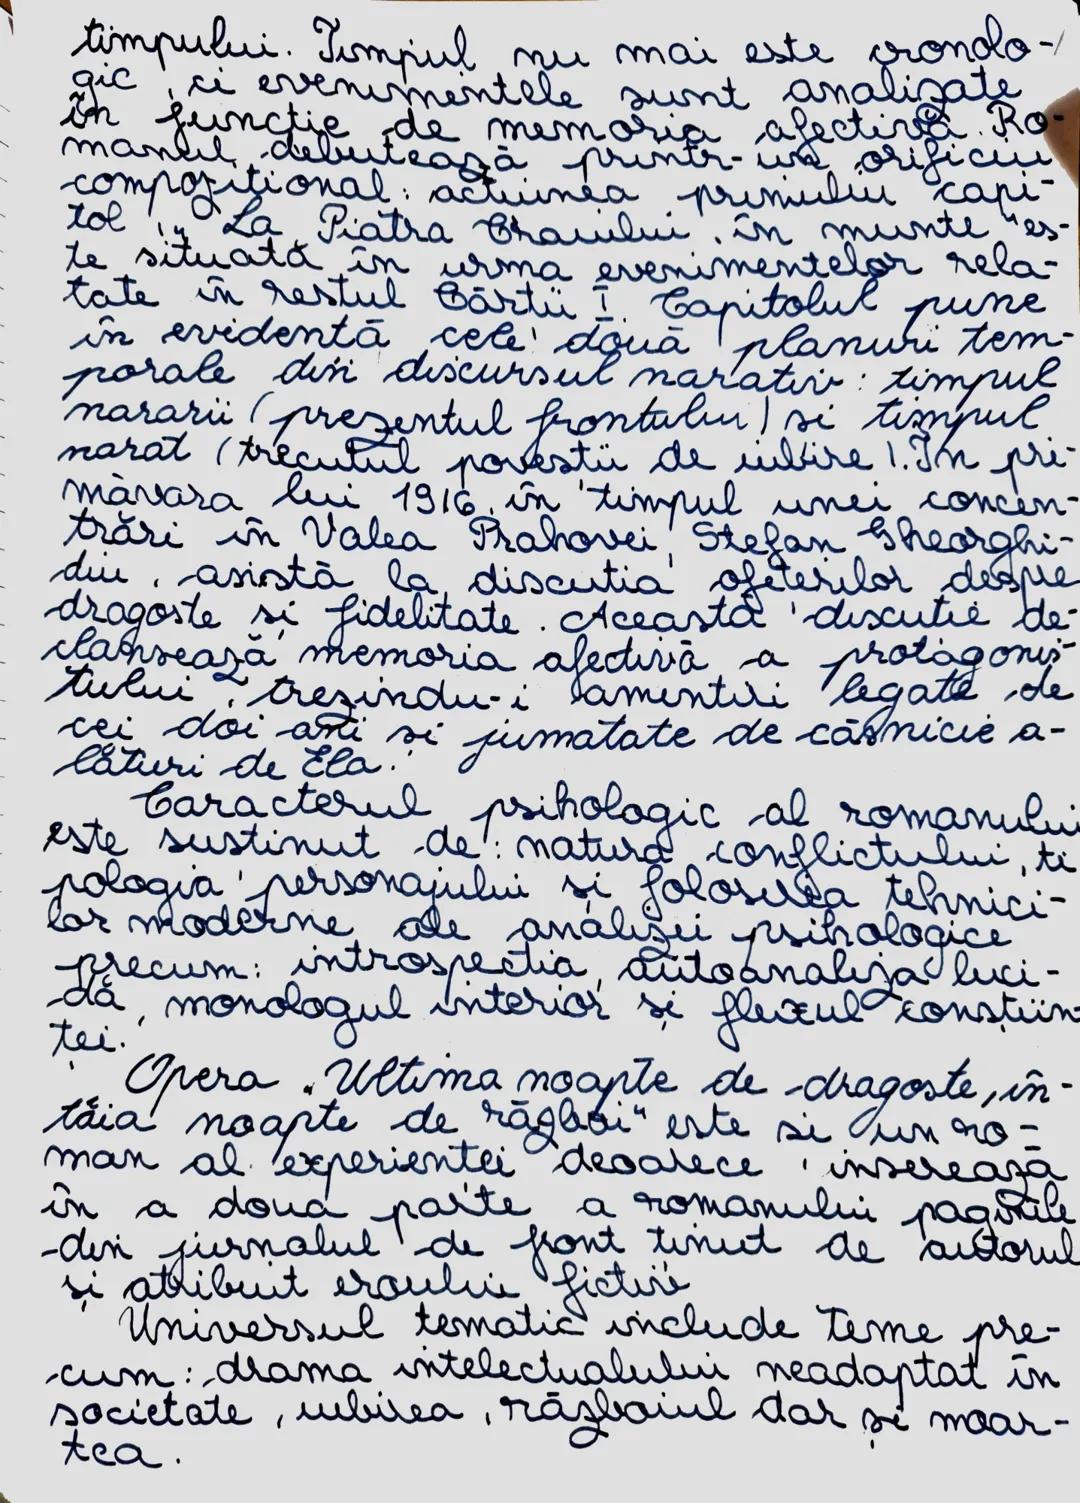 timpului. Timpul nu mai este cronolo-
gic, ci evenimentele sunt analizate
în funcție de memoria afectivă. Ro-
manul debutează printr-un orificiu
compozițional: acțiunea primului capi-
tol, „La Piatra Craiului, în munte" es-
te situată în urma evenimentelor rela-
tate în restul Cărții I. Capitolul pune
în evidență cele două planuri tem-
porale din discursul narativ: timpul
nararii (prezentul frontului) și timpul
narat (trecutul povestii de iubire). În pri-
măvara lui 1916, în timpul unei concen-
trări în Valea Prahovei, Ștefan Gheorghi-
diu, asistă la discuția ofițerilor despre
dragoste și fidelitate. Această discuție de-
clansează memoria afectivă a protagonis-
tului, trezindu-i amintiri legate de
cei doi ani și jumatate de căsnicie a-
lături de Ela.
Caracterul psihologic al romanului
este susținut de: natura conflictului, ti
pologia personajului și folosirea tehnici-
lor moderne ale analizei psihologice
precum: introspecția, autoanaliza luci-
dă, monologul interior și fluxul conștiin-
ței.
Opera „Ultima noapte de dragoste, în-
tâia noapte de război" este și un ro-
man al experienței deoarece inserează
în a doua parte a romanului paginile
din jurnalul de front ținut de autorul
și atribuit eroului fictiv
Universul tematic include teme pre-
cum: drama intelectualului neadaptat în
societate, iubirea, războiul dar și moar-
tea.